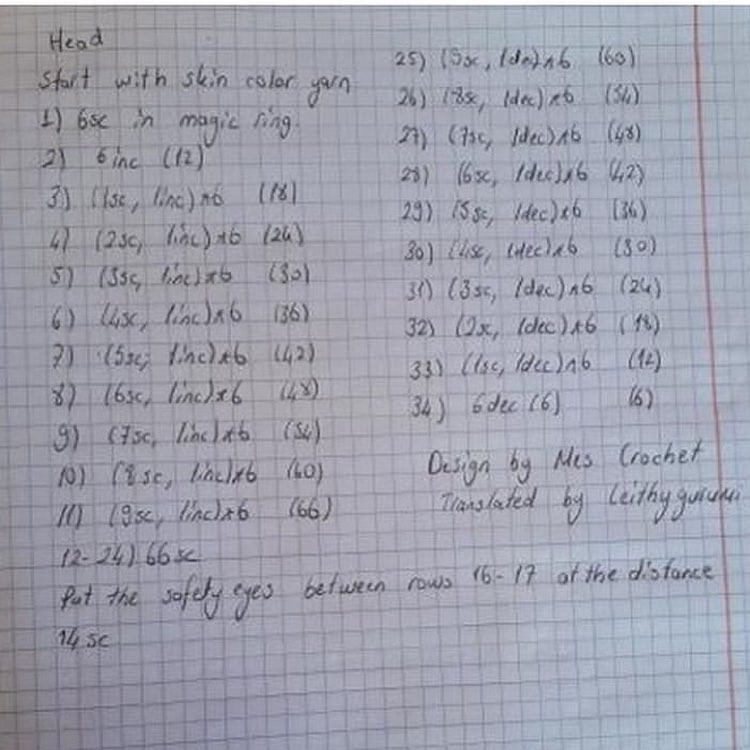 Head
Start with skin color yarn
1) 6sc in magic ring.
2) 6 inc (12)
3) (1sc, 1inc)x6 (18)
4) (2sc, 1inc)x6 (24)
5) (3sc, 1inc)x6 (30)
6) (4sc, 1inc)x6 (36)
7) (5sc, 1inc)x6 (42)
8) (6sc, 1inc)x6 (48)
9) (7sc, 1inc)x6 (54)
10) (8sc, 1inc)x6 (60)
11) (9sc, 1inc)x6 (66)
12-24) 66sc
Put the safety eyes between rows 16-17 at the distance
14 sc
25) (9sc, 1dec)x6 (60)
26) (8sc, 1dec)x6 (54)
27) (7sc, 1dec)x6 (48)
28) (6sc, 1dec)x6 (42)
29) (5sc, 1dec)x6 (36)
30) (4sc, 1dec)x6 (30)
31) (3sc, 1dec)x6 (24)
32) (2sc, 1dec)x6 (18)
33) (1sc, 1dec)x6 (12)
34) 6dec (6) (6)
Design by Mes Crochet
Translated by leithygurumi